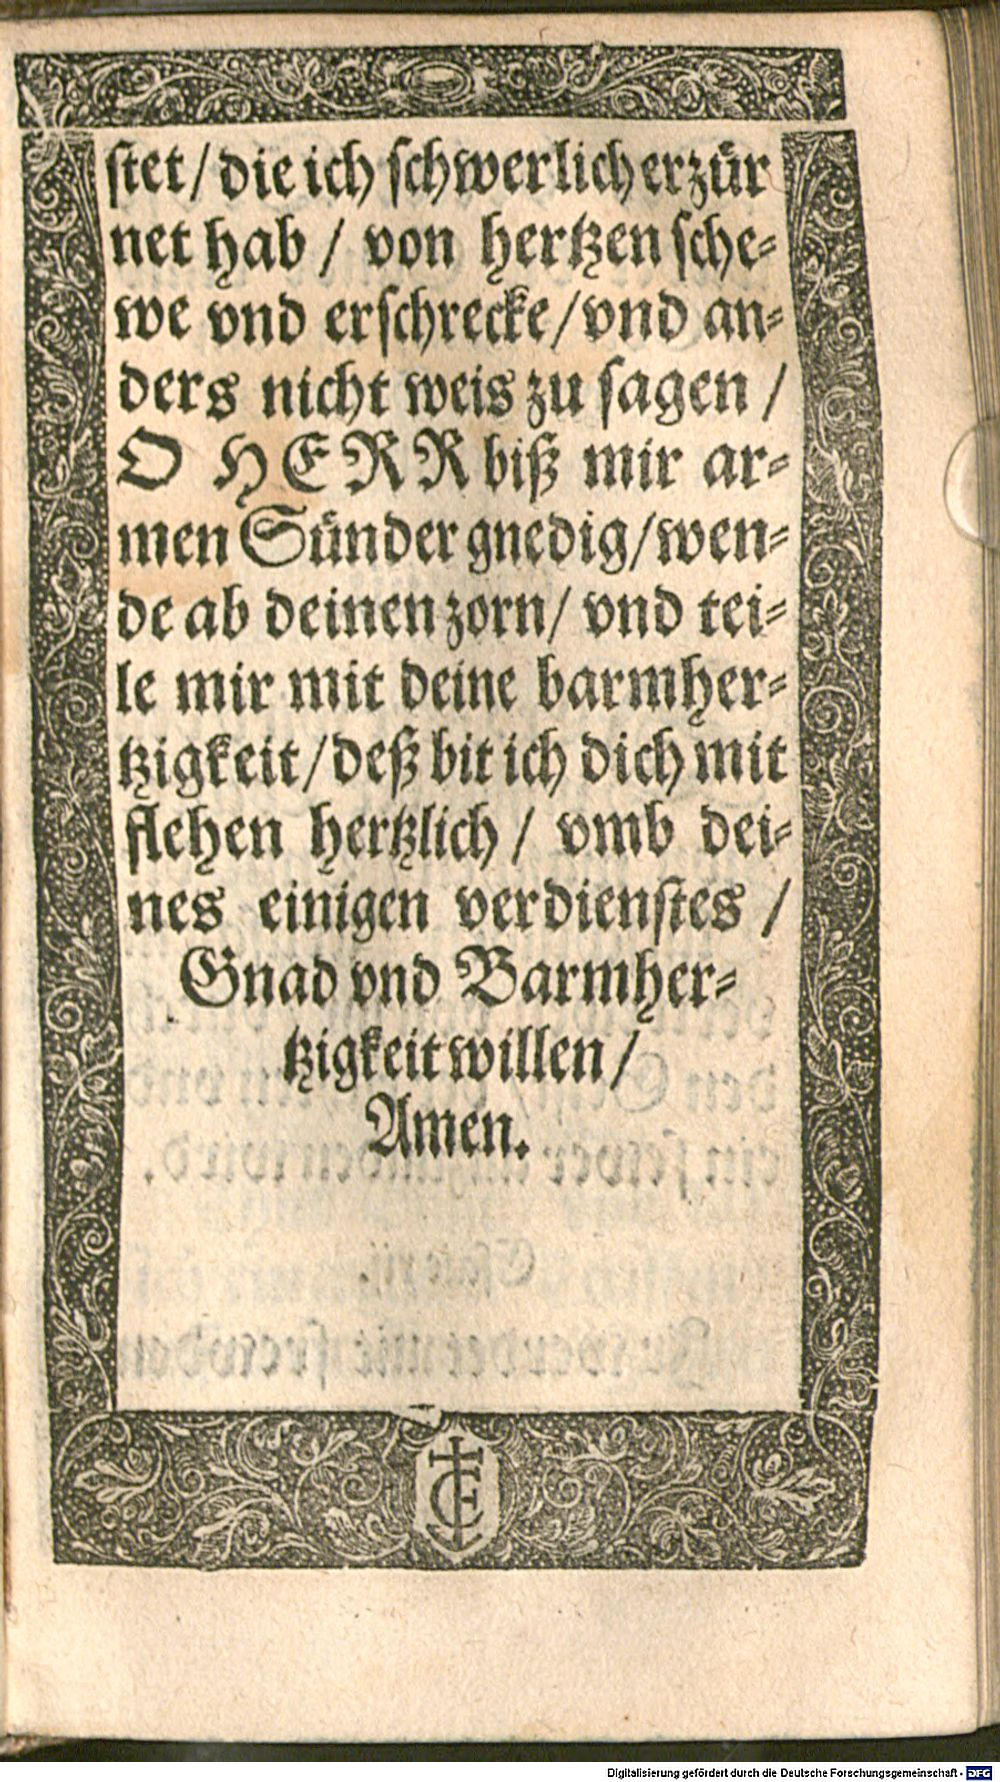 ſtet/ die ich ſchwerlich erzür
net hab / von hertzen ſche-
we vnd erſchrecke/ vnd an-
ders nicht weis zu ſagen /
O HERR biß mir ar-
men Sünder gnedig/ wen-
de ab deinen zorn/ vnd tei-
le mir mit deine barmher-
tzigkeit/ deß bit ich dich mit
flehen hertzlich / vmb dei-
nes einigen verdienſtes /
Gnad vnd Barmher-
tzigkeit willen/
Amen.
Digitalisierung gefördert durch die Deutsche Forschungsgemeinschaft - DFG